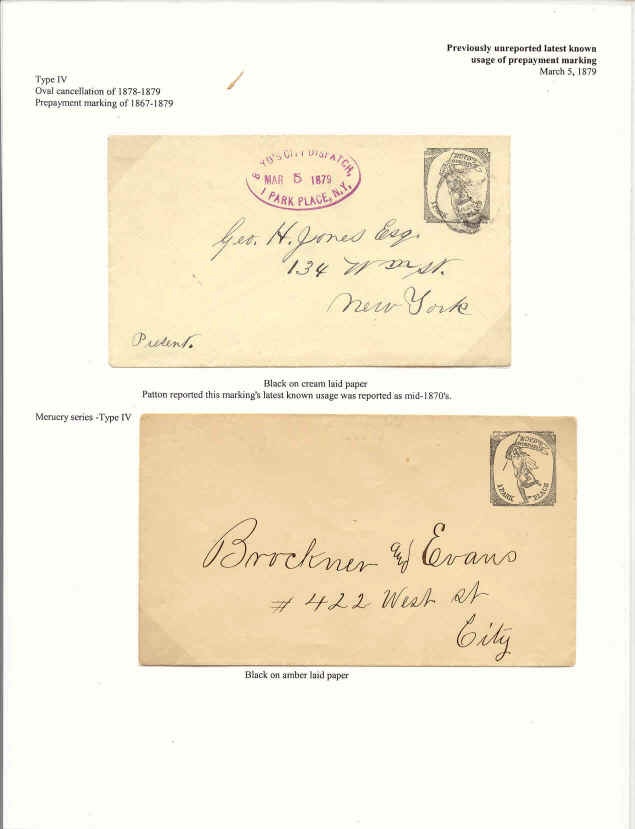 Previously unreported latest known
usage of prepayment marking
March 5, 1879
Type IV
Oval cancellation of 1878-1879
Prepayment marking of 1867-1879
B YD'S CITY DISPATCH,
MAR 5 1879
1 PARK PLACE, N.Y.
BOYD'S
1 PARK
Geo. H. Jones Esq.
134 Wm St.
New York
Present.
Black on cream laid paper
Patton reported this marking's latest known usage was reported as mid-1870's.
Meruery series -Type IV
BOYD'S
DISPATCH
1 PARK PLACE
Brockner and Evans
# 422 West st
City
Black on amber laid paper